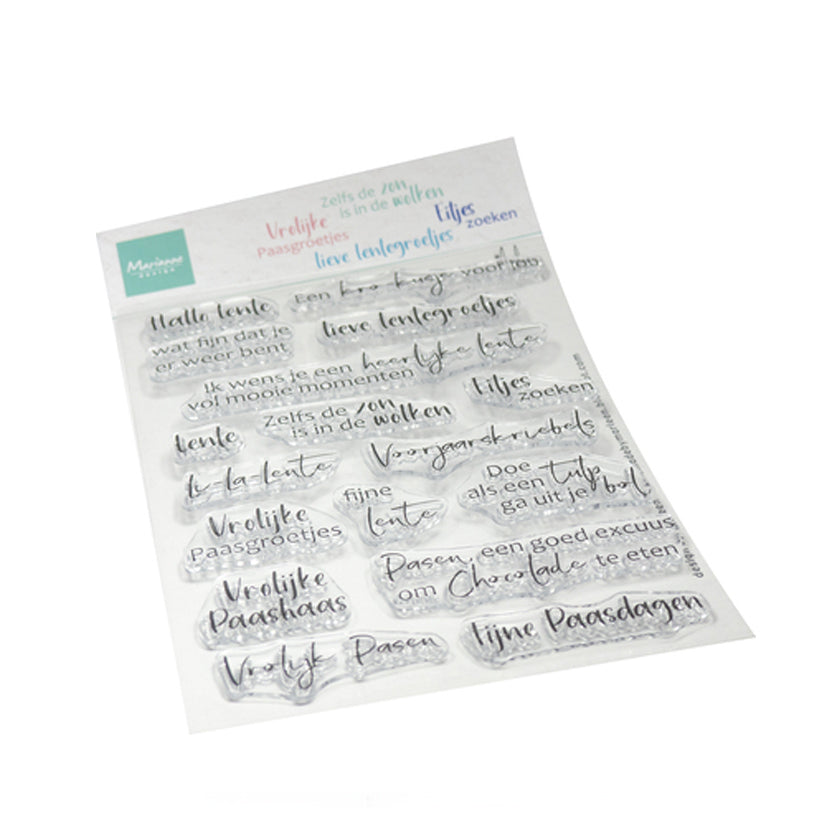 Zelfs de zon
is in de wolken
Vrolijke
Paasgroetjes
Eitjes
zoeken
lieve lentegroetjes
Marianne
DESIGN
Een kro-kusje voor jou
Hallo lente
wat fijn dat je
er weer bent
lieve lentegroetjes
Ik wens je een heerlijke lente
vol mooie momenten
Eitjes
zoeken
Zelfs de zon
is in de wolken
lente
Voorjaarskriebels
li-la-lente
fijne
lente
Doe
als een tulp
ga uit je bol
Vrolijke
Paasgroetjes
Pasen, een goed excuus
om Chocolade te eten
Vrolijke
Paashaas
Vrolijk Pasen
Fijne Paasdagen